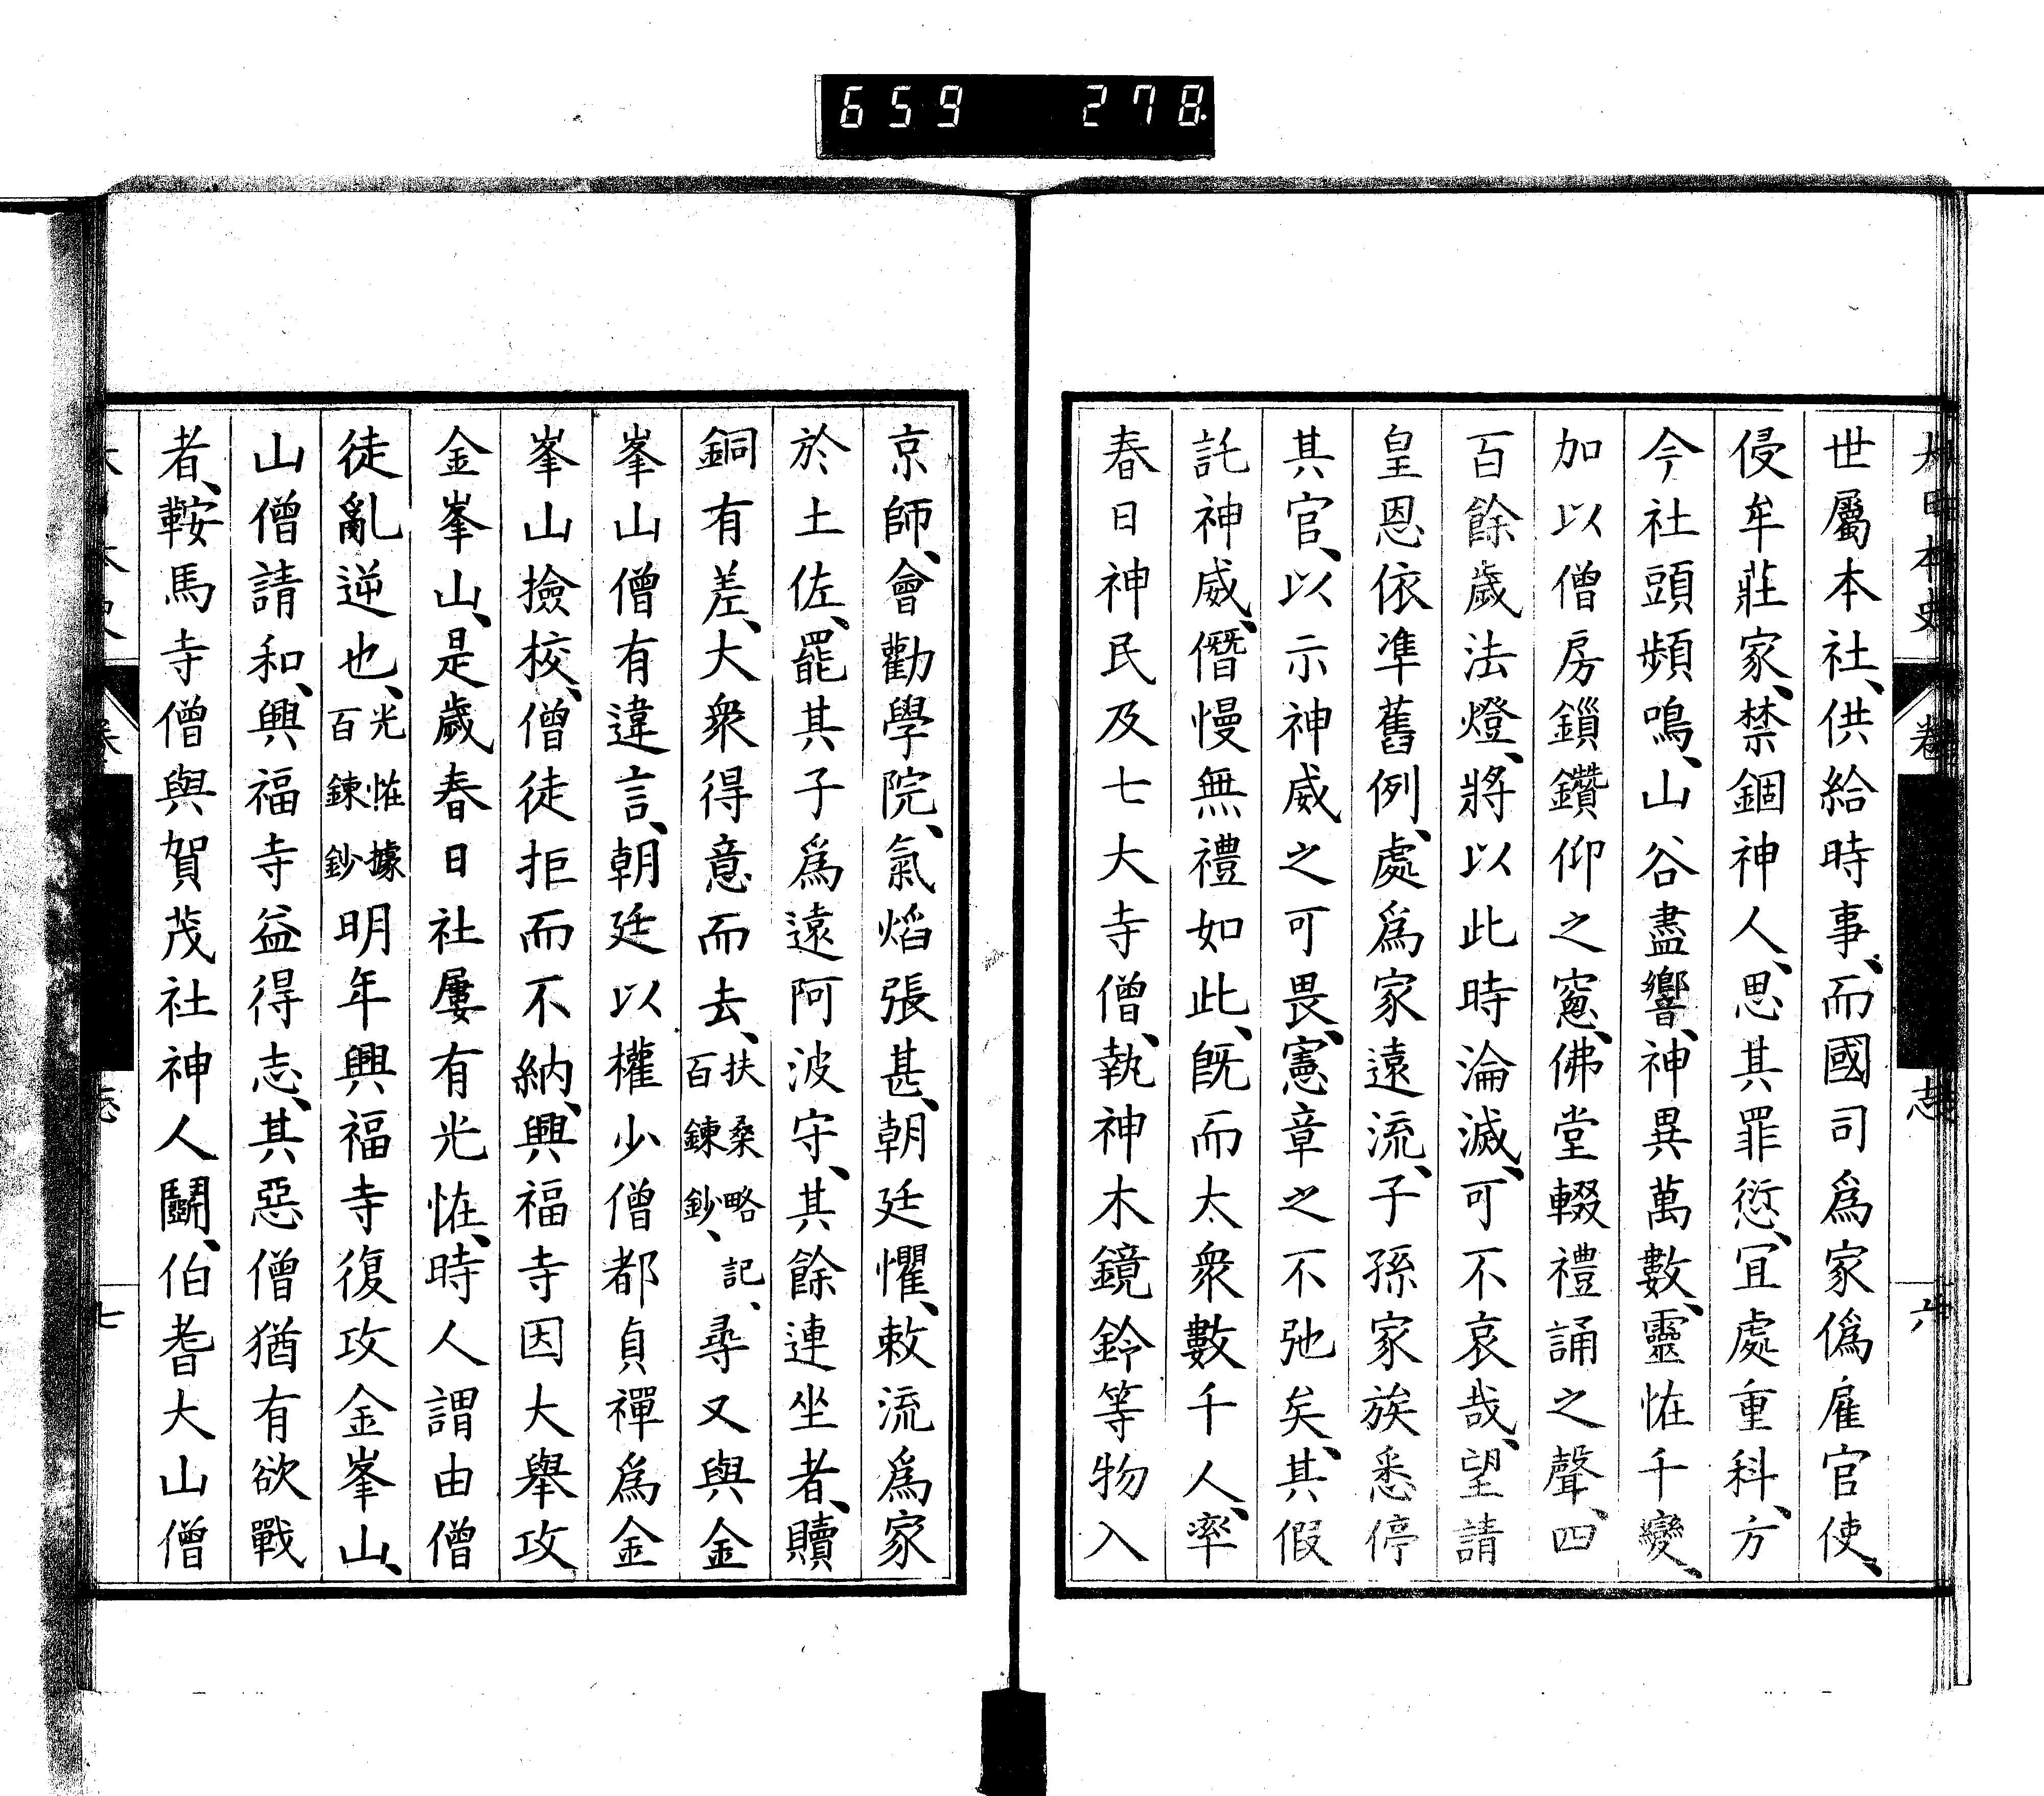 659 278
大日本史 卷 志 六
世屬本社、供給時事、而國司爲家僞雇官使、
侵牟莊家、禁錮神人、思其罪愆、宜處重科、方
今社頭頻鳴、山谷盡響、神異萬數、靈恠千變、
加以僧房鎻鑽仰之窓、佛堂輟禮誦之聲、四
百餘歲法燈、將以此時淪滅、可不哀哉、望請
皇恩依準舊例、處爲家遠流、子孫家族悉停
其官、以示神威之可畏、憲章之不弛矣、其假
託神威、僭慢無禮如此、既而太衆數千人、率
春日神民及七大寺僧、執神木鏡鈴等物入
京師、會勸學院、氣焰張甚、朝廷懼、敕流爲家
於土佐、罷其子爲遠阿波守、其餘連坐者、贖
銅有差、大衆得意而去、扶桑略記、百鍊鈔、尋又與金
峯山僧有違言、朝廷以權少僧都貞禪爲金
峯山撿校、僧徒拒而不納、興福寺因大舉攻
金峯山、是歲春日社屢有光恠、時人謂由僧
徒亂逆也、光恠據百鍊鈔明年興福寺復攻金峯山、
山僧請和、興福寺益得志、其惡僧猶有欲戰
者、鞍馬寺僧與賀茂社神人鬭、伯耆大山僧
七